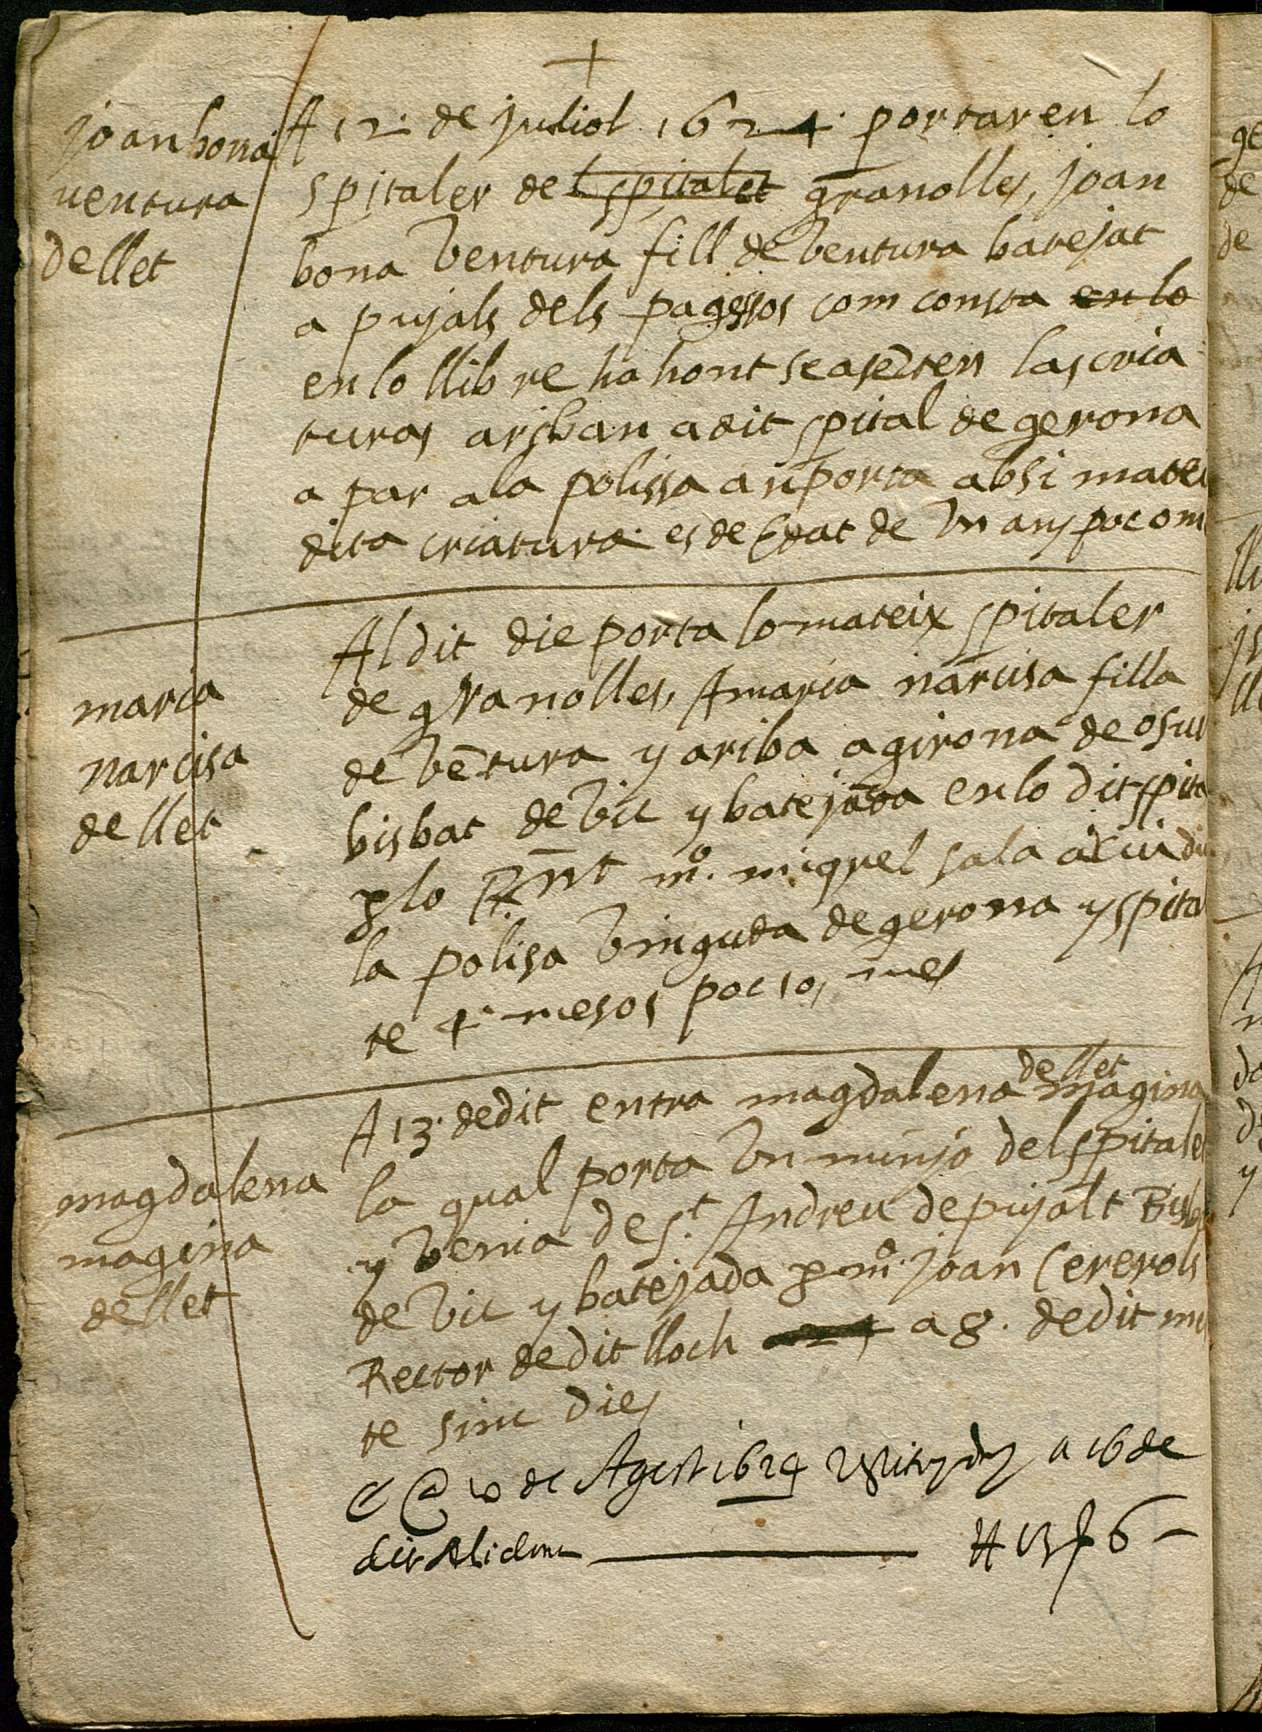 joan bona
ventura
de llet
A 12 de juliol 1624 portaren lo
spitaler de l spitalet granolles, joan
bona Ventura fill de Ventura batejat
a pujals dels pagessos com consta en lo
en lo llibre ha hont se asẽten las cria
turas ariban a dit spital de gerona
a par a la polissa anporta absi matei
dita criatura es de Edat de Vn any poc o m
maria
narcisa
de llet
Al dit die porta lo mateix spitaler
de granolles, A maria narcisa filla
de Vẽtura y ariba a girona de osu
bisbat de Vic y batejada en lo dit spita
p lo Rnt mº. miquel sala
la polisa Vinguda de gerona y spita
te 4 mesos poc so, mes
magdalena
magina
de llet
A 13 de dit entra magdalena de llet magina
la qual porta Vn minjo del spitale
y Venia de St Andreu de pujalt Bisb
de Vic y batejada p mº. joan Cererols
Rector de dit lloch a 8. de dit m
te sinc dies
de Agost 1624 a 16 de
dit
13 ß 6